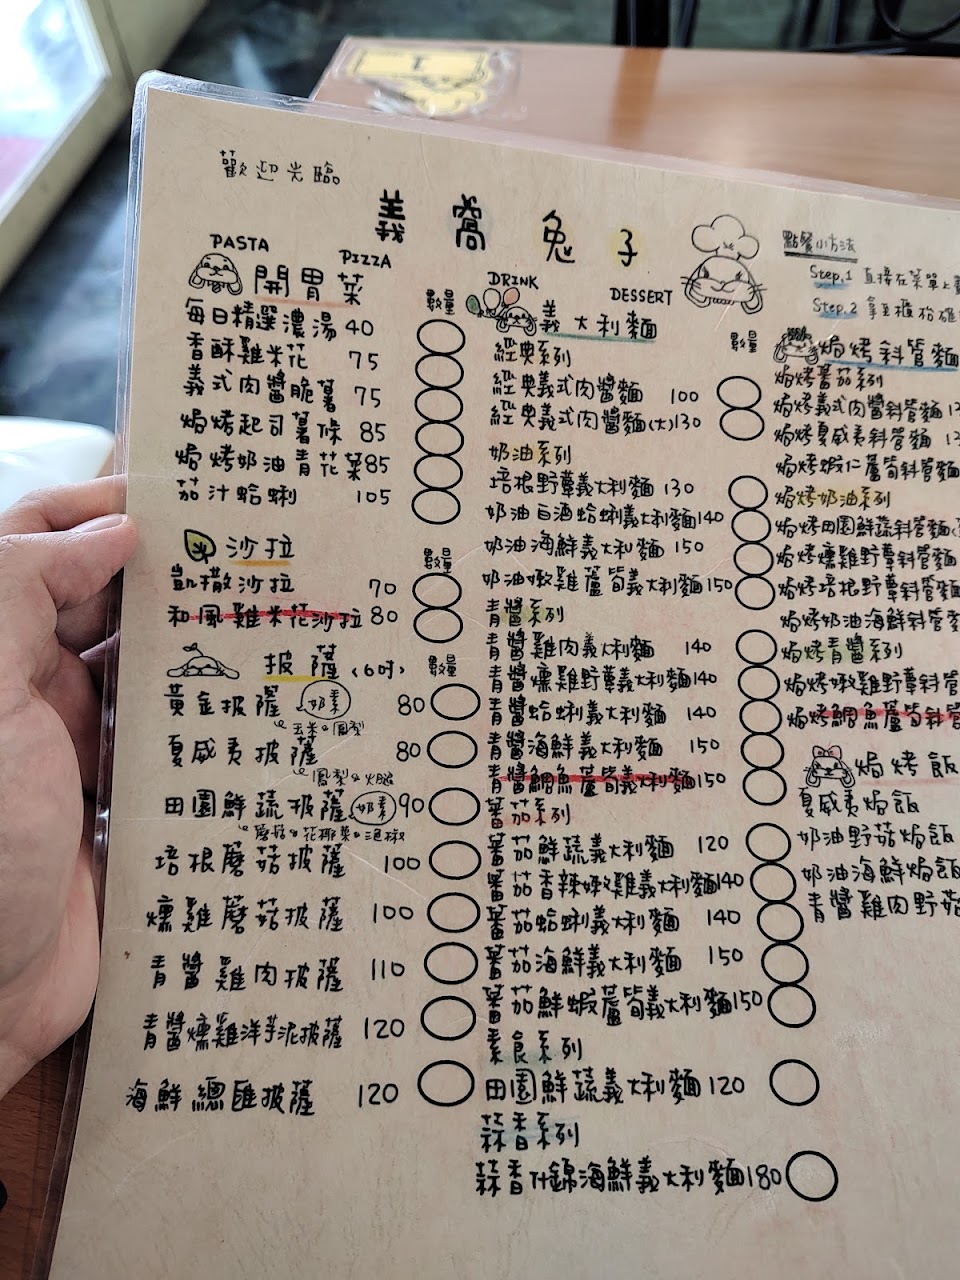 1
歡迎光臨
義窩兔子
PASTA
PIZZA
DRINK
DESSERT
開胃菜
數量
每日精選濃湯 40
香酥雞米花 75
義式肉醬脆薯 75
焗烤起司薯條 85
焗烤奶油青花菜 85
茄汁蛤蜊 105
沙拉
數量
凱撒沙拉 70
和風雞米花沙拉 80
披薩(6吋)
數量
黃金披薩 奶素 80
玉米&鳳梨
夏威夷披薩 80
鳳梨&火腿
田園鮮蔬披薩 奶素 90
蘑菇&花椰菜&渔椒
培根蘑菇披薩 100
燻雞蘑菇披薩 100
青醬雞肉披薩 110
青醬燻雞洋芋泥披薩 120
海鮮總匯披薩 120
義大利麵
數量
經典系列
經典義式肉醬麵 100
經典義式肉醬麵(大) 130
奶油系列
培根野蕈義大利麵 130
奶油白酒蛤蜊義大利麵 140
奶油海鮮義大利麵 150
奶油嫩雞蘆筍義大利麵 150
青醬系列
青醬雞肉義大利麵 140
青醬燻雞野蕈義大利麵 140
青醬蛤蜊義大利麵 140
青醬海鮮義大利麵 150
青醬鯛魚蘆筍義大利麵 150
蕃茄系列
蕃茄鮮蔬義大利麵 120
蕃茄香辣嫩雞義大利麵 140
蕃茄蛤蜊義大利麵 140
蕃茄海鮮義大利麵 150
蕃茄鮮蝦蘆筍義大利麵 150
素食系列
田園鮮蔬義大利麵 120
蒜香系列
蒜香什錦海鮮義大利麵 180
點餐小方法
Step.1 直接在菜單上
Step.2 拿至櫃枱
焗烤斜管麵
焗烤蕃茄系列
焗烤義式肉醬斜管麵
焗烤夏威夷斜管麵
焗烤蝦仁蘆筍斜管麵
焗烤奶油系列
焗烤田園鮮蔬斜管麵
焗烤燻雞野蕈斜管麵
焗烤培根野蕈斜管麵
焗烤奶油海鮮斜管麵
焗烤青醬系列
焗烤嫩雞野蕈斜管
焗烤鯛魚蘆筍斜管
焗烤飯
夏威夷焗飯
奶油野菇焗飯
奶油海鮮焗飯
青醬雞肉野菇